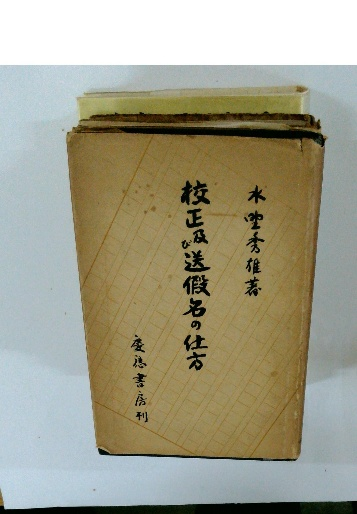 水野秀雄著
校正及び送假名の仕方
慶應書房刊